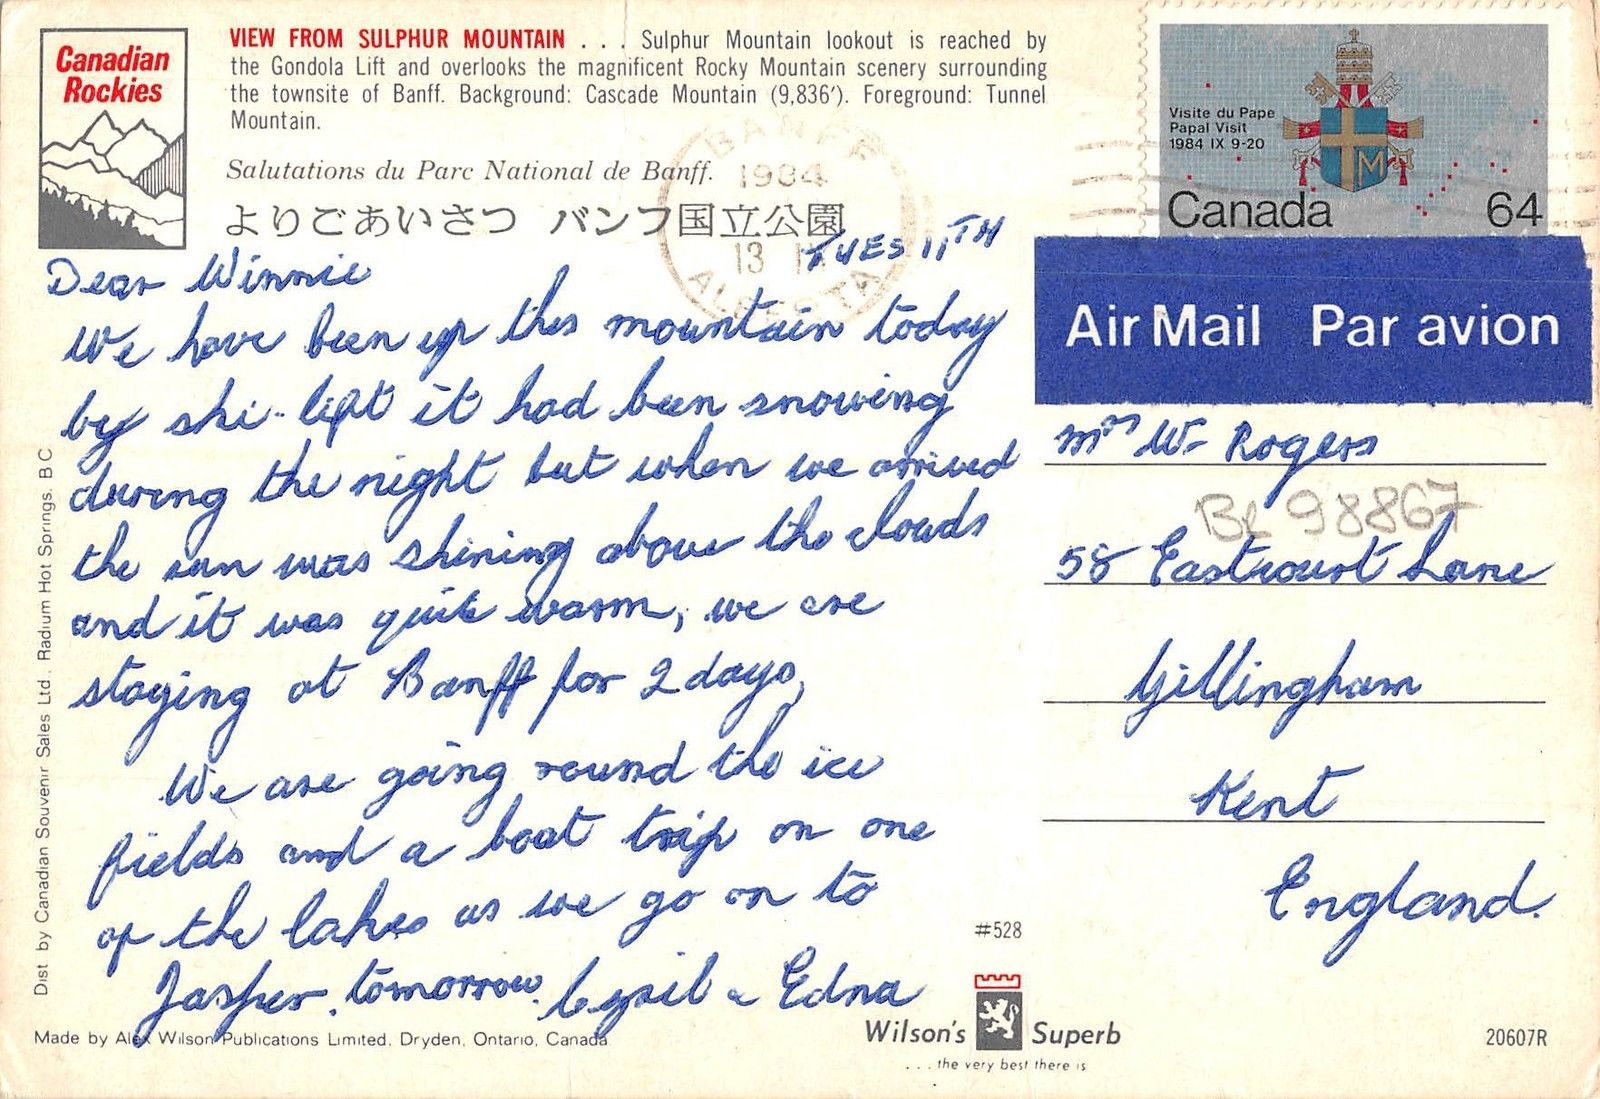 Canadian
Rockies
VIEW FROM SULPHUR MOUNTAIN . . . Sulphur Mountain lookout is reached by
the Gondola Lift and overlooks the magnificent Rocky Mountain scenery surrounding
the townsite of Banff. Background: Cascade Mountain (9,836'). Foreground: Tunnel
Mountain.
Salutations du Parc National de Banff.
よりごあいさつ バンフ国立公園
BANFF
1984
13
ALBERTA
Visite du Pape
Papal Visit
1984 IX 9-20
Canada 64
Air Mail Par avion
TUES 11TH
Dear Winnie
We have been up this mountain today
by ski-lift it had been snowing
during the night but when we arrived
the sun was shining above the clouds
and it was quite warm, we are
staying at Banff for 2 days,
We are going round the ice
fields and a boat trip on one
of the lakes as we go on to
Jasper. tomorrow. Cyril & Edna
Mrs W. Rogers
BL 98867
58 Eastcourt Lane
Gillingham
Kent
England.
#528
Wilson's Superb
. . . the very best there is
20607R
Made by Alex Wilson Publications Limited, Dryden, Ontario, Canada
Dist by Canadian Souvenir Sales Ltd. Radium Hot Springs. B C